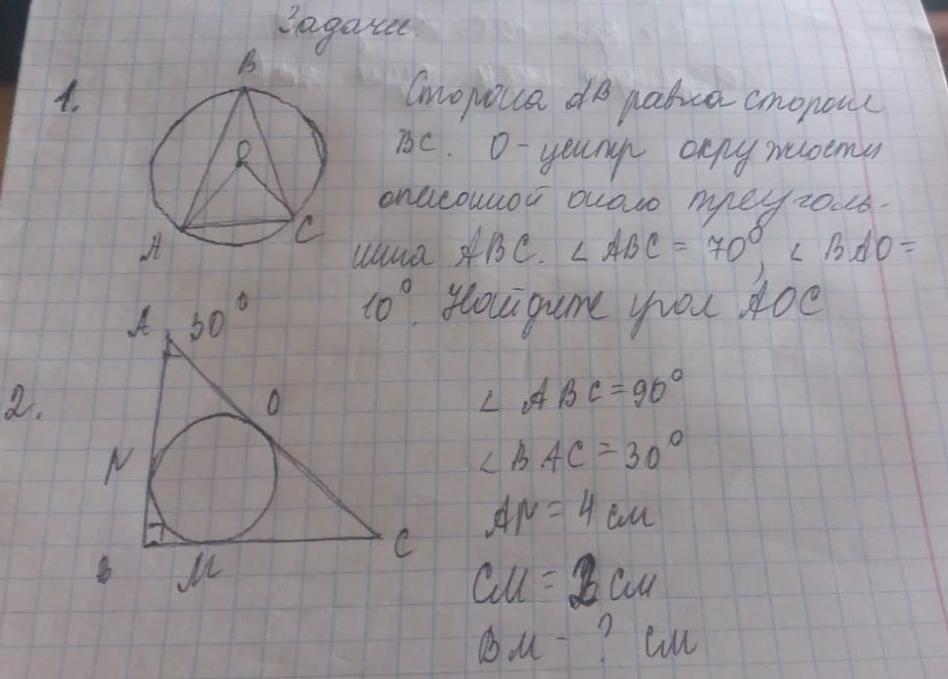 Задачи
1.
B
O
A
C
Сторона AB равна стороне
BC. O - центр окружности
описанной около треуголь-
ника ABC. ∠ ABC = 70°, ∠ BAO =
10°. Найдите угол AOC
2.
A 30°
O
N
B
M
C
∠ ABC = 90°
∠ BAC = 30°
AN = 4 см
CM = см
BM - ? см